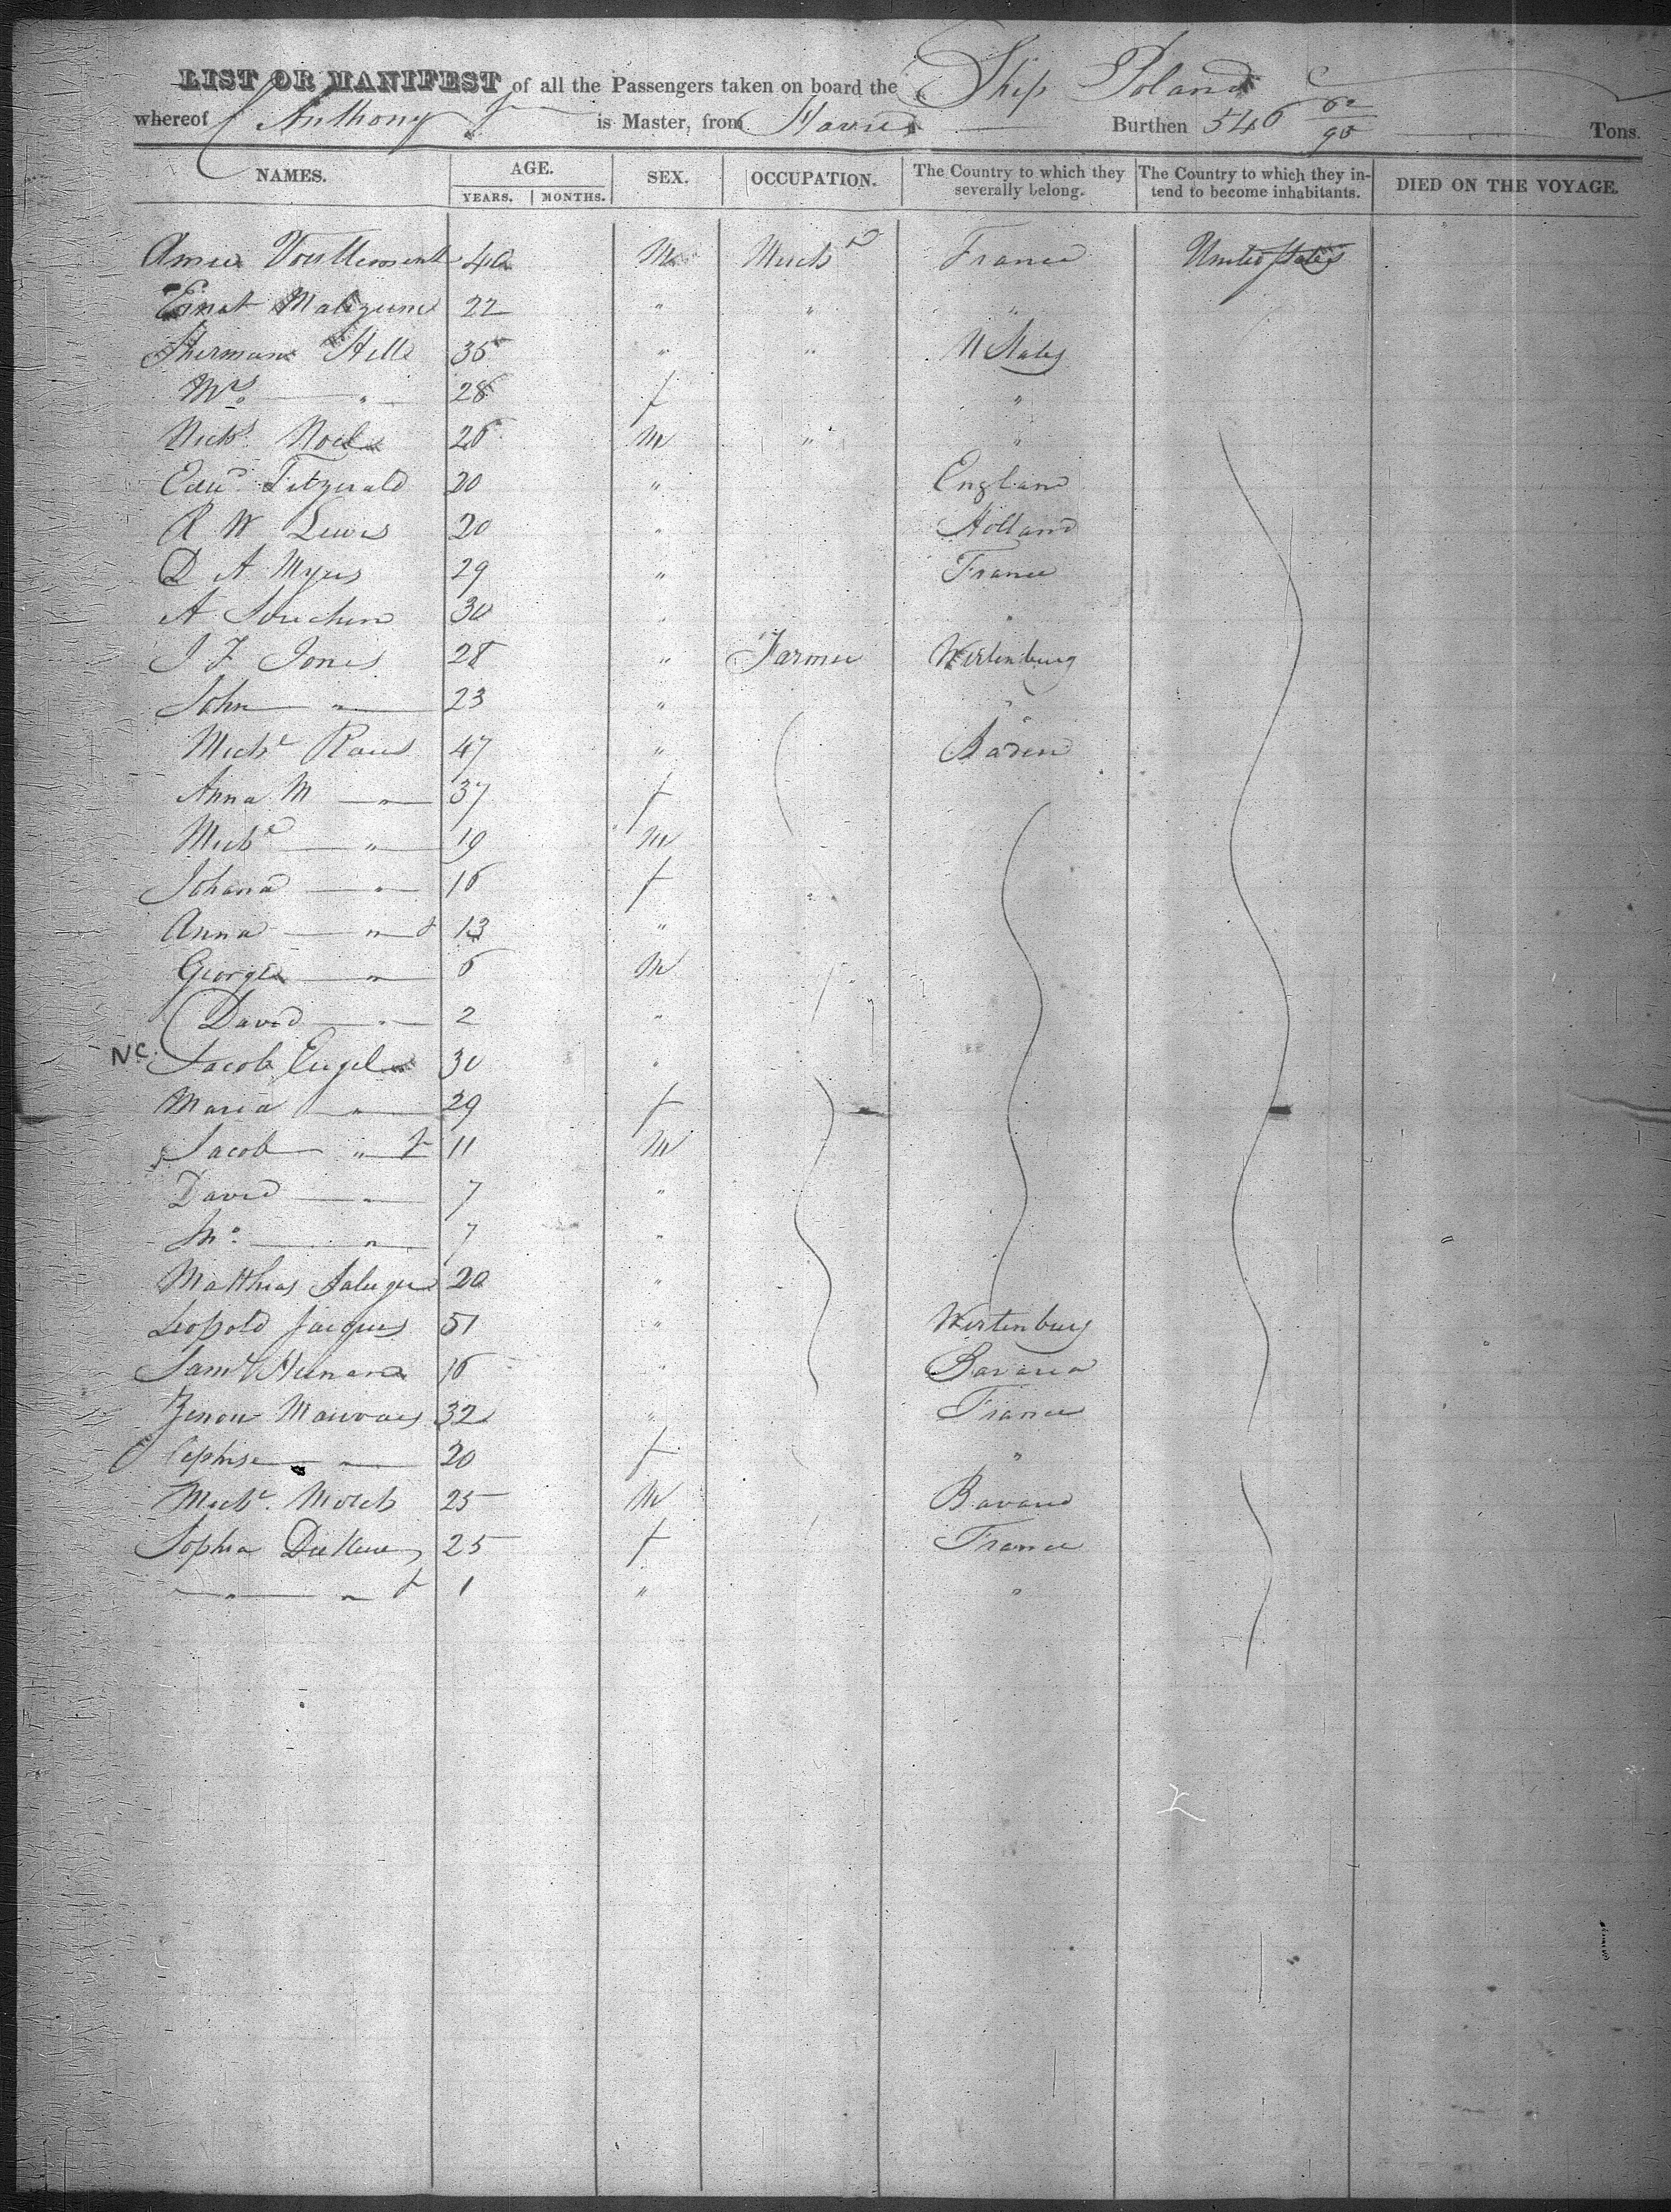 LIST OR MANIFEST of all the Passengers taken on board the Ship Poland
whereof Anthony is Master, from Havre Burthen 546 62/95 Tons.
NAMES. AGE. SEX. OCCUPATION. The Country to which they severally belong. The Country to which they intend to become inhabitants. DIED ON THE VOYAGE.
YEARS. MONTHS.
40 M Mercht France United States
22 " " "
Sherman Hills 35 " " U States
Mrs " 28 f "
Nichs Noel 26 M " "
Edwd Fitzgerald 20 " England
R W Lewis 20 " Holland
D A Myers 29 " France
A 30 " "
J F Jones 28 " Farmer Wirtenburg
John " 23 " "
Michl 47 " Baden
Anna M " 37 f
Michl " 19 M
Johana " 16 f
Anna " 13 "
George " 6 M
David " 2 "
NC. Jacob Engel 30 "
Maria " 29 f
Jacob " 11 M
David " 7 "
Jno " 7 "
Matthias 20 "
Leopold Jacques 51 " Wirtenburg
Saml 16 " Bavaria
32 " France
Cephise " 20 f "
Michl 25 M Bavaria
Sophia 25 f France
" " 1 " "